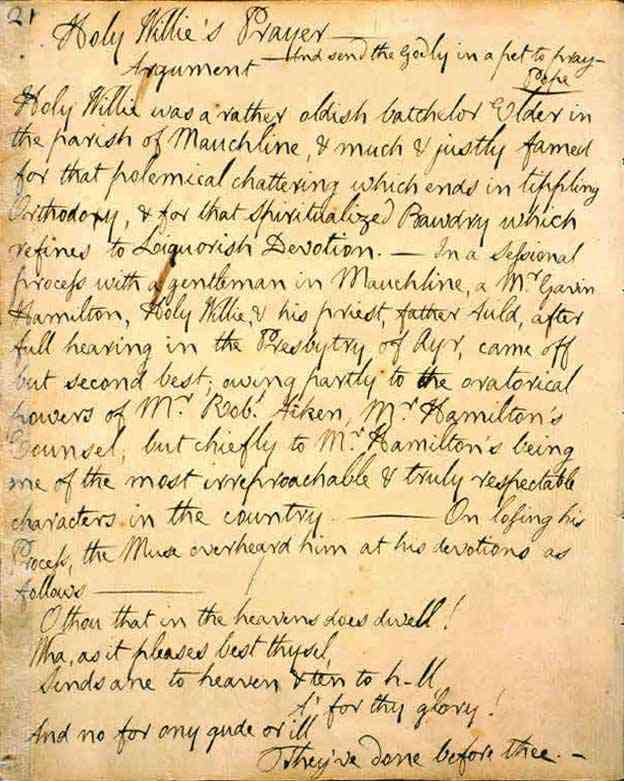 21
Holy Willie's Prayer —
And send the Godly in a pet to pray —
Argument —
Pope
Holy Willie was a rather oldish batchelor Elder in
the parish of Mauchline, & much & justly famed
for that polemical chattering which ends in tippling
Orthodoxy, & for that Spiritualized Bawdry which
refines to Liquorish Devotion. — In a Sessional
process with a gentleman in Mauchline, a Mr. Gavin
Hamilton, Holy Willie, & his priest, father Auld, after
full hearing in the Presbytry of Ayr, came off
but second best; owing partly to the oratorical
powers of Mr. Robt. Aiken, Mr. Hamilton's
Counsel, but chiefly to Mr. Hamilton's being
one of the most irreproachable & truly respectable
characters in the country — On losing his
Process, the Muse overheard him at his devotions as
follows —
O thou that in the heavens does dwell!
Wha, as it pleases best thysel,
Sends ane to heaven & ten to h-ll
A' for thy glory!
And no for ony gude or ill
They've done before thee. —